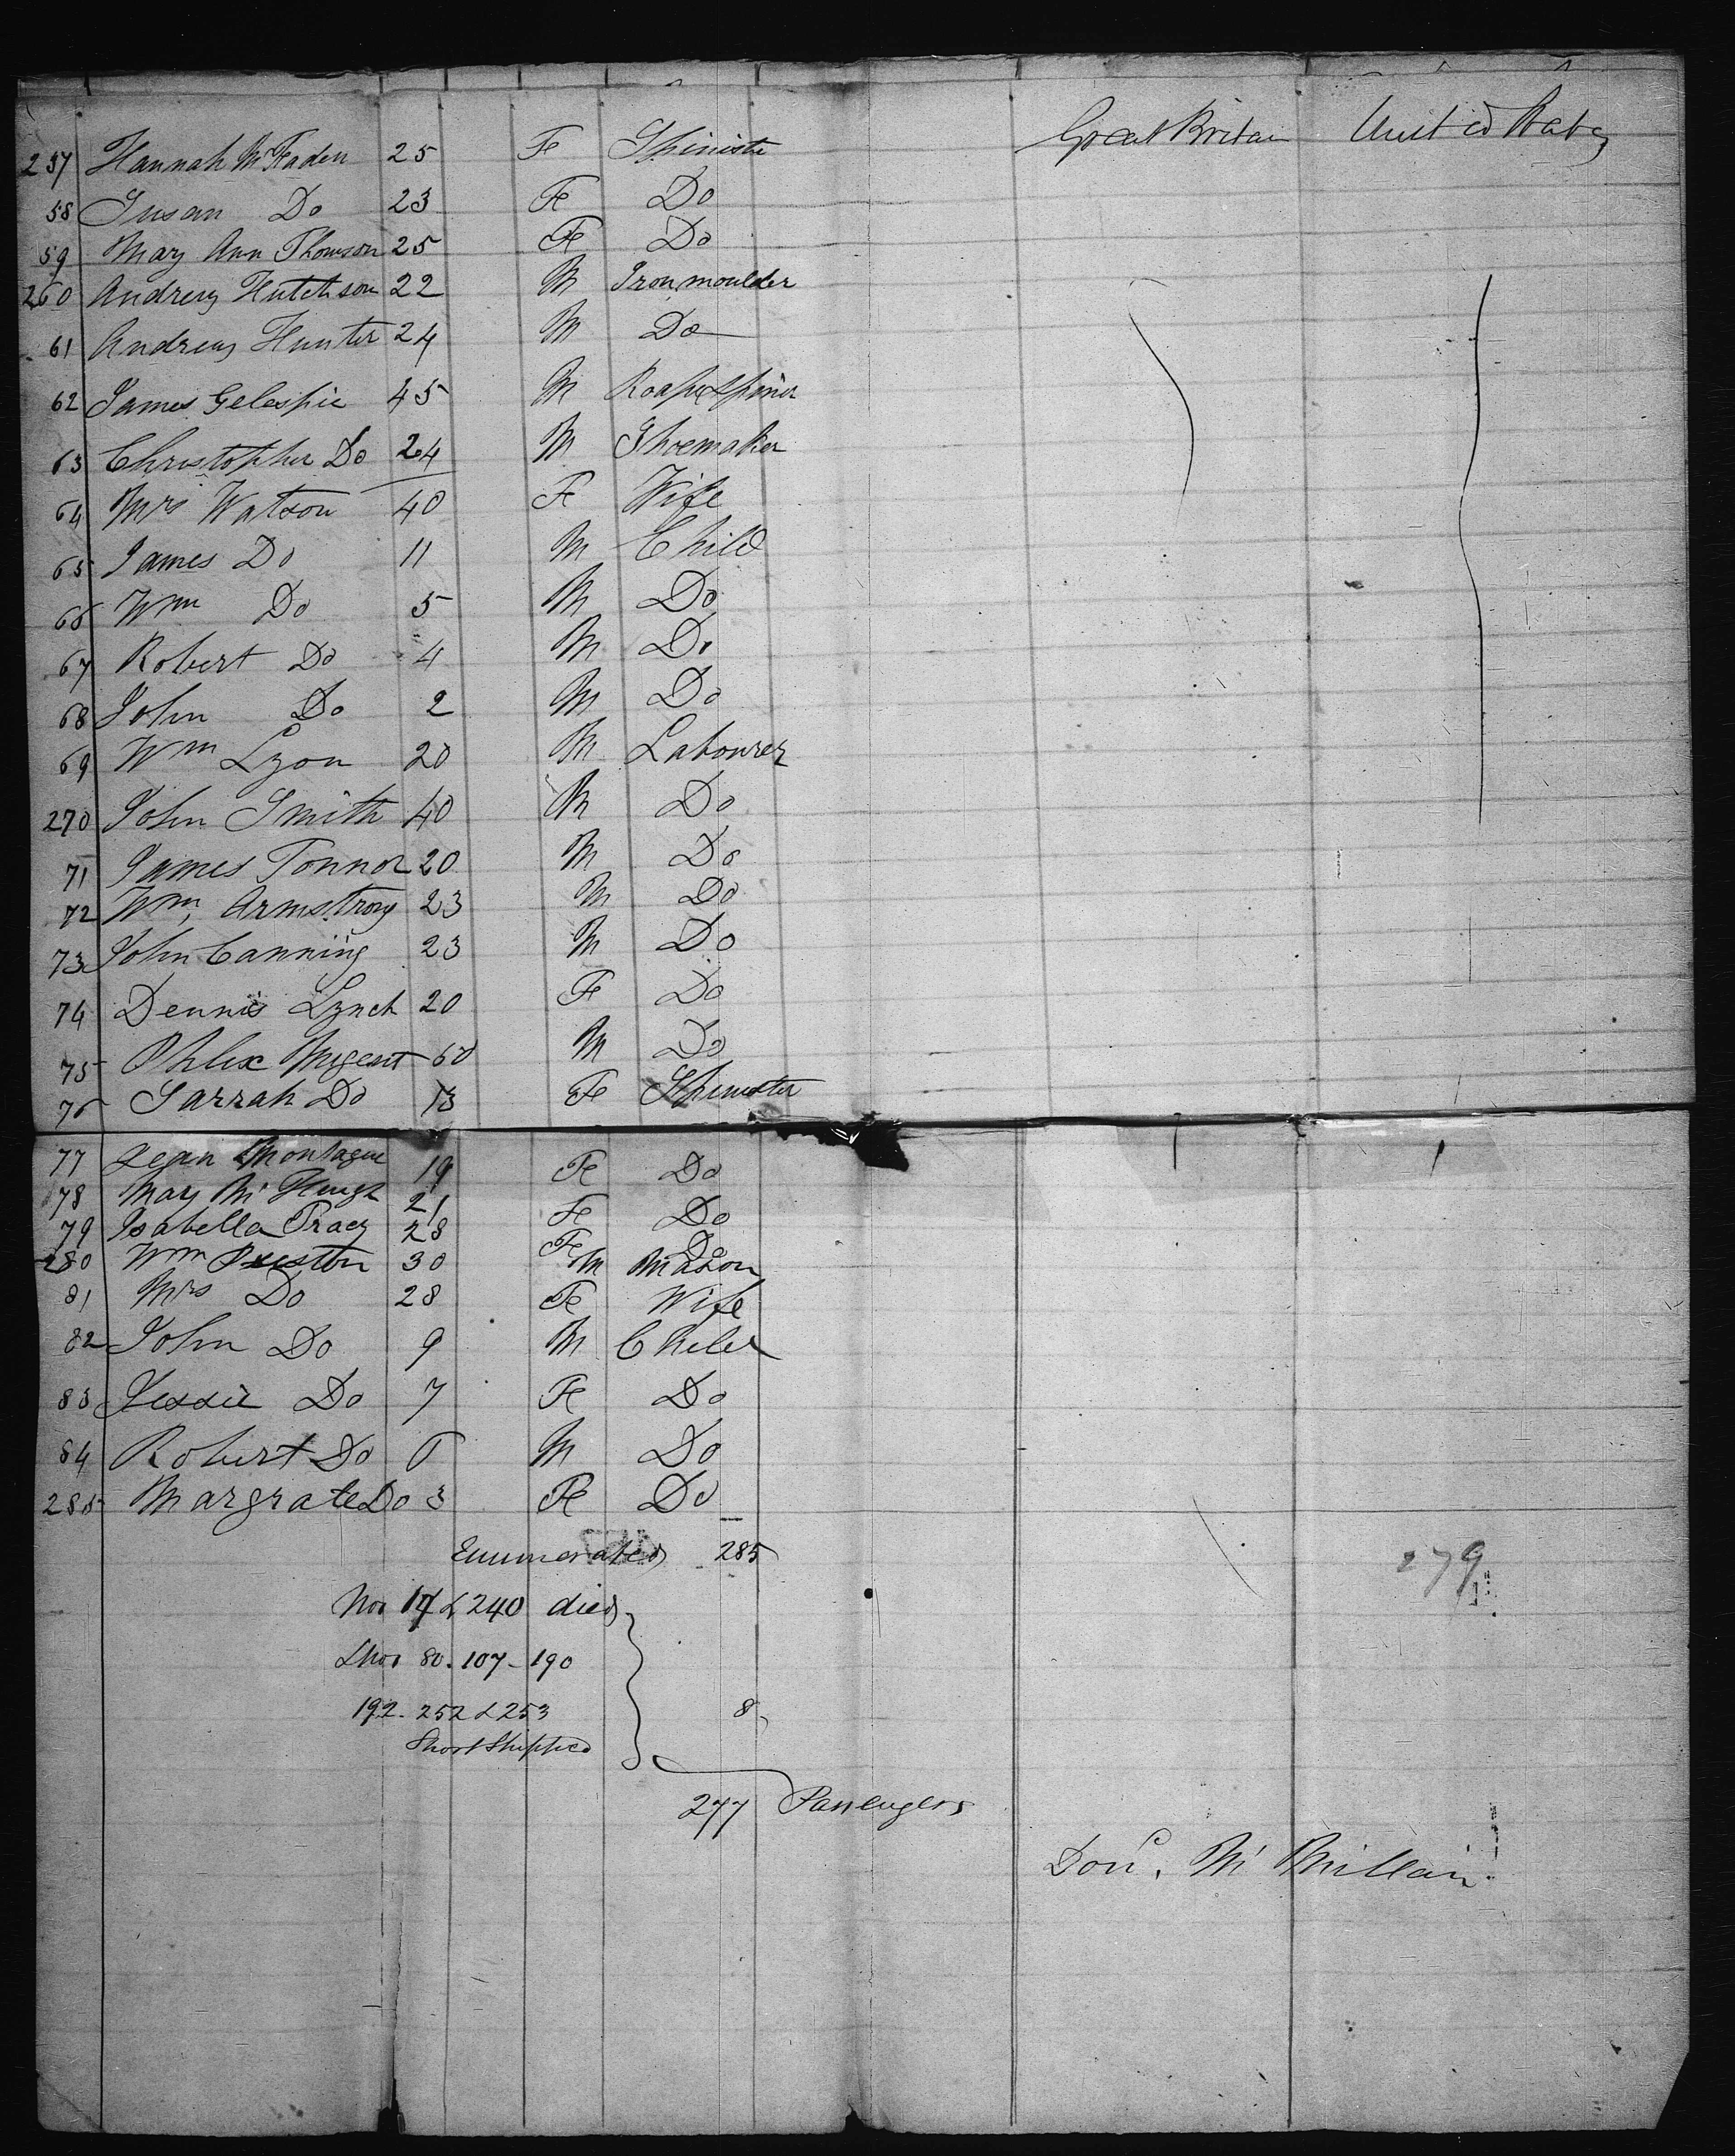 257 Hannah McFaden 25 Fe Spiniste Great Britan United States
58 Susan Do 23 Fe Do
59 Mary Ann Thomson 25 Fe Do
260 Andrew Hutchson 22 M Iron moulder
61 Andrew Hunter 24 M Do
62 James Gelespie 45 M Roape Spiner
63 Christopher Do 24 M Shoemaker
64 Mrs Watson 40 Fe Wife
65 James Do 11 M Child
66 Wm Do 5 M Do
67 Robert Do 4 M Do
68 John Do 2 M Do
69 Wm Lyon 20 M Labourer
270 John Smith 40 M Do
71 James Tonnor 20 M Do
72 Wm Armstrong 23 M Do
73 John Canning 23 M Do
74 Dennis Lynch 20 Fe Do
75 Phlix 60 M Do
76 Sarrah Do 13 Fe Spinister
77 Jean Montague 19 Fe Do
78 Mary Mc Hugh 21 Fe Do
79 Isabella Pracy 28 Fe Do
280 Wm Preston 30 M Mason
81 Mrs Do 28 Fe Wife
82 John Do 9 M Child
83 Jessie Do 7 Fe Do
84 Robert Do M Do
285 Margrate Do 3 Fe Do
Enumerated 285
279
Nos 17 & 240 died
80. 107 - 190
192. 252 & 253 8
Short Shipped
277 Passengers
Don. Mc Millan